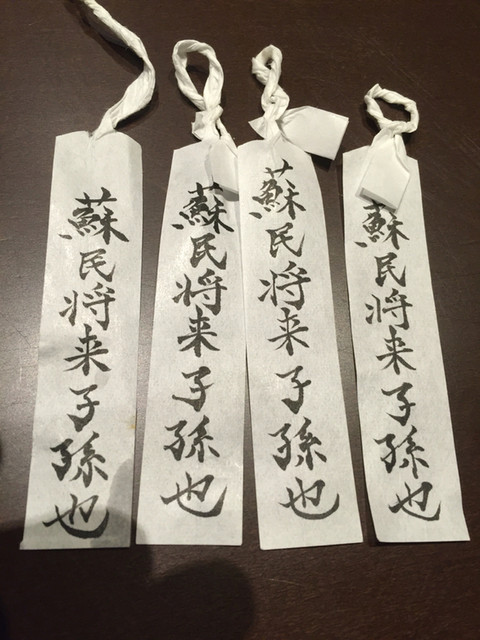 蘇民将来子孫也
蘇民将来子孫也
蘇民将来子孫也
蘇民将来子孫也